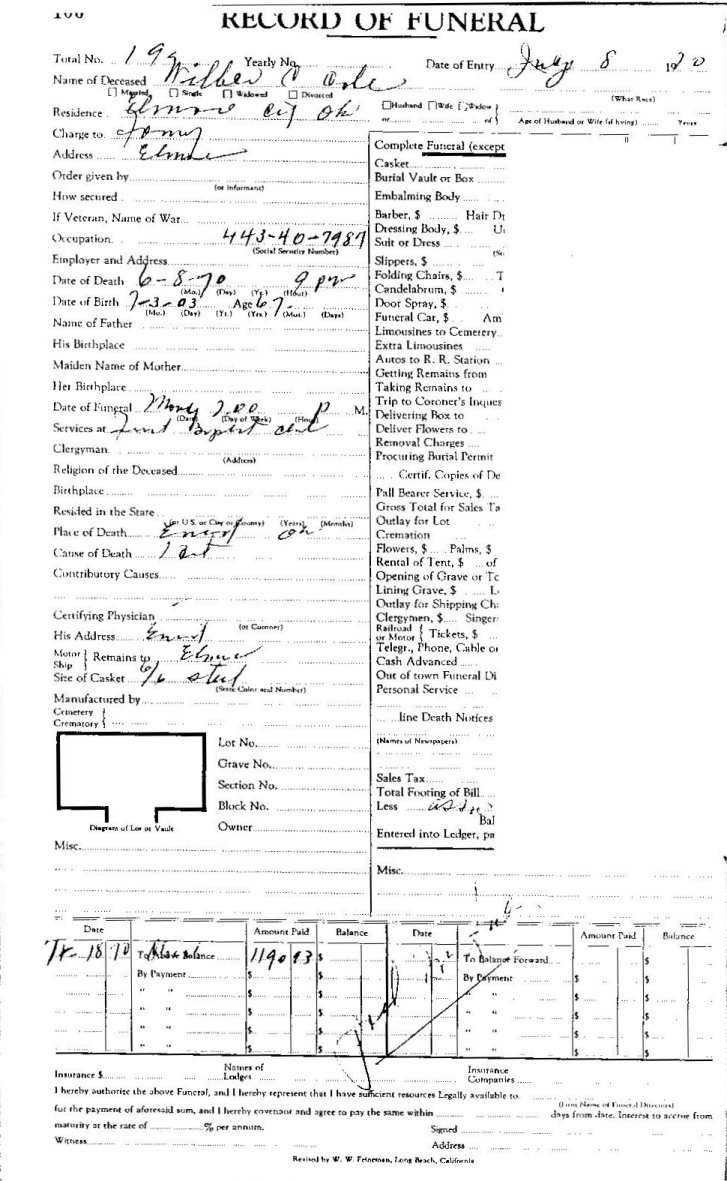 RECORD OF FUNERAL
Total No. 199 Yearly No. Date of Entry July 8 1970
Name of Deceased Wilber C Cole
☐ Married ☐ Single ☐ Widowed ☐ Divorced
(What Race)
Residence Elmore city Ok
☐ Husband ☐ Wife ☐ Widow
or of
Age of Husband or Wife (if living) Years
Charge to
Address Elmore
Order given by
(or Informant)
How secured
If Veteran, Name of War
Occupation 443-40-7987
(Social Security Number)
Employer and Address
Date of Death 6-8-70 9 pm
(Mo.) (Day) (Yr.) (Hour)
Date of Birth 7-3-03 Age 67
(Mo.) (Day) (Yr.) (Yrs.) (Mos.) (Days)
Name of Father
His Birthplace
Maiden Name of Mother
Her Birthplace
Date of Funeral 2.00 P M.
(Date) (Day of Week) (Hour)
Services at First Baptist
Clergyman
(Address)
Religion of the Deceased
Birthplace
Resided in the State
(or U.S. or City or County) (Years) (Months)
Place of Death Ok
Cause of Death
Contributory Causes
Certifying Physician
(or Coroner)
His Address
Motor Ship Remains to Elmore
Size of Casket 6/6 steel
(State Color and Number)
Manufactured by
Cemetery
Crematory
Lot No.
Grave No.
Section No.
Block No.
Owner
Diagram of Lot or Vault
Misc.
Complete Funeral (except
Casket
Burial Vault or Box
Embalming Body
Barber, $ Hair Dr
Dressing Body, $
Suit or Dress
Slippers, $
Folding Chairs, $ T
Candelabrum, $
Door Spray, $
Funeral Car, $ Am
Limousines to Cemetery
Extra Limousines
Autos to R. R. Station
Getting Remains from
Taking Remains to
Trip to Coroner's Inques
Delivering Box to
Deliver Flowers to
Removal Charges
Procuring Burial Permit
Certif. Copies of De
Pall Bearer Service, $
Gross Total for Sales Ta
Outlay for Lot
Cremation
Flowers, $ Palms, $
Rental of Tent, $ of
Opening of Grave or To
Lining Grave, $
Outlay for Shipping Ch
Clergymen, $ Singer
Railroad or Motor Tickets, $
Telegr., Phone, Cable or
Cash Advanced
Out of town Funeral Di
Personal Service
line Death Notices
(Names of Newspapers)
Sales Tax
Total Footing of Bill
Less
Bal
Entered into Ledger, pa
Misc.
Date Amount Paid Balance Date Amount Paid Balance
18 70 To Balance 1190 93 $ To Balance Forward $
By Payment $ $ By Payment $ $
" " $ $ " " $ $
" " $ $ " " $ $
" " $ $ " " $ $
" " $ $ " " $ $
Insurance $ Names of Lodges Insurance Companies
I hereby authorize the above Funeral, and I hereby represent that I have sufficient resources Legally available to
(Firm Name of Funeral Directors)
for the payment of aforesaid sum, and I hereby covenant and agree to pay the same within days from date. Interest to accrue from
maturity at the rate of % per annum. Signed
Witness Address
Revised by W. W. Feineman, Long Beach, California